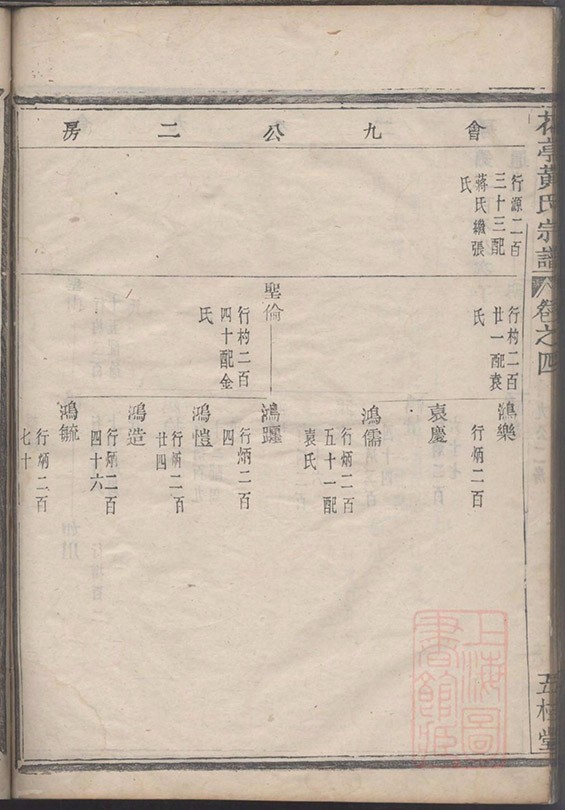 亭黃氏宗譜
卷之四
會九公二房
行源二百
三十三配
蔣氏繼張
氏
行杓二百
廿一配袁
氏
聖倫
行杓二百
四十配金
氏
鴻樂
行炳二百
袁慶
鴻儒
行炳二百
五十一配
袁氏
鴻躍
行炳二百
四
鴻愷
行炳二百
廿四
鴻造
行炳二百
四十六
鴻毓
行炳二百
七十
上海圖
書館
五
堂